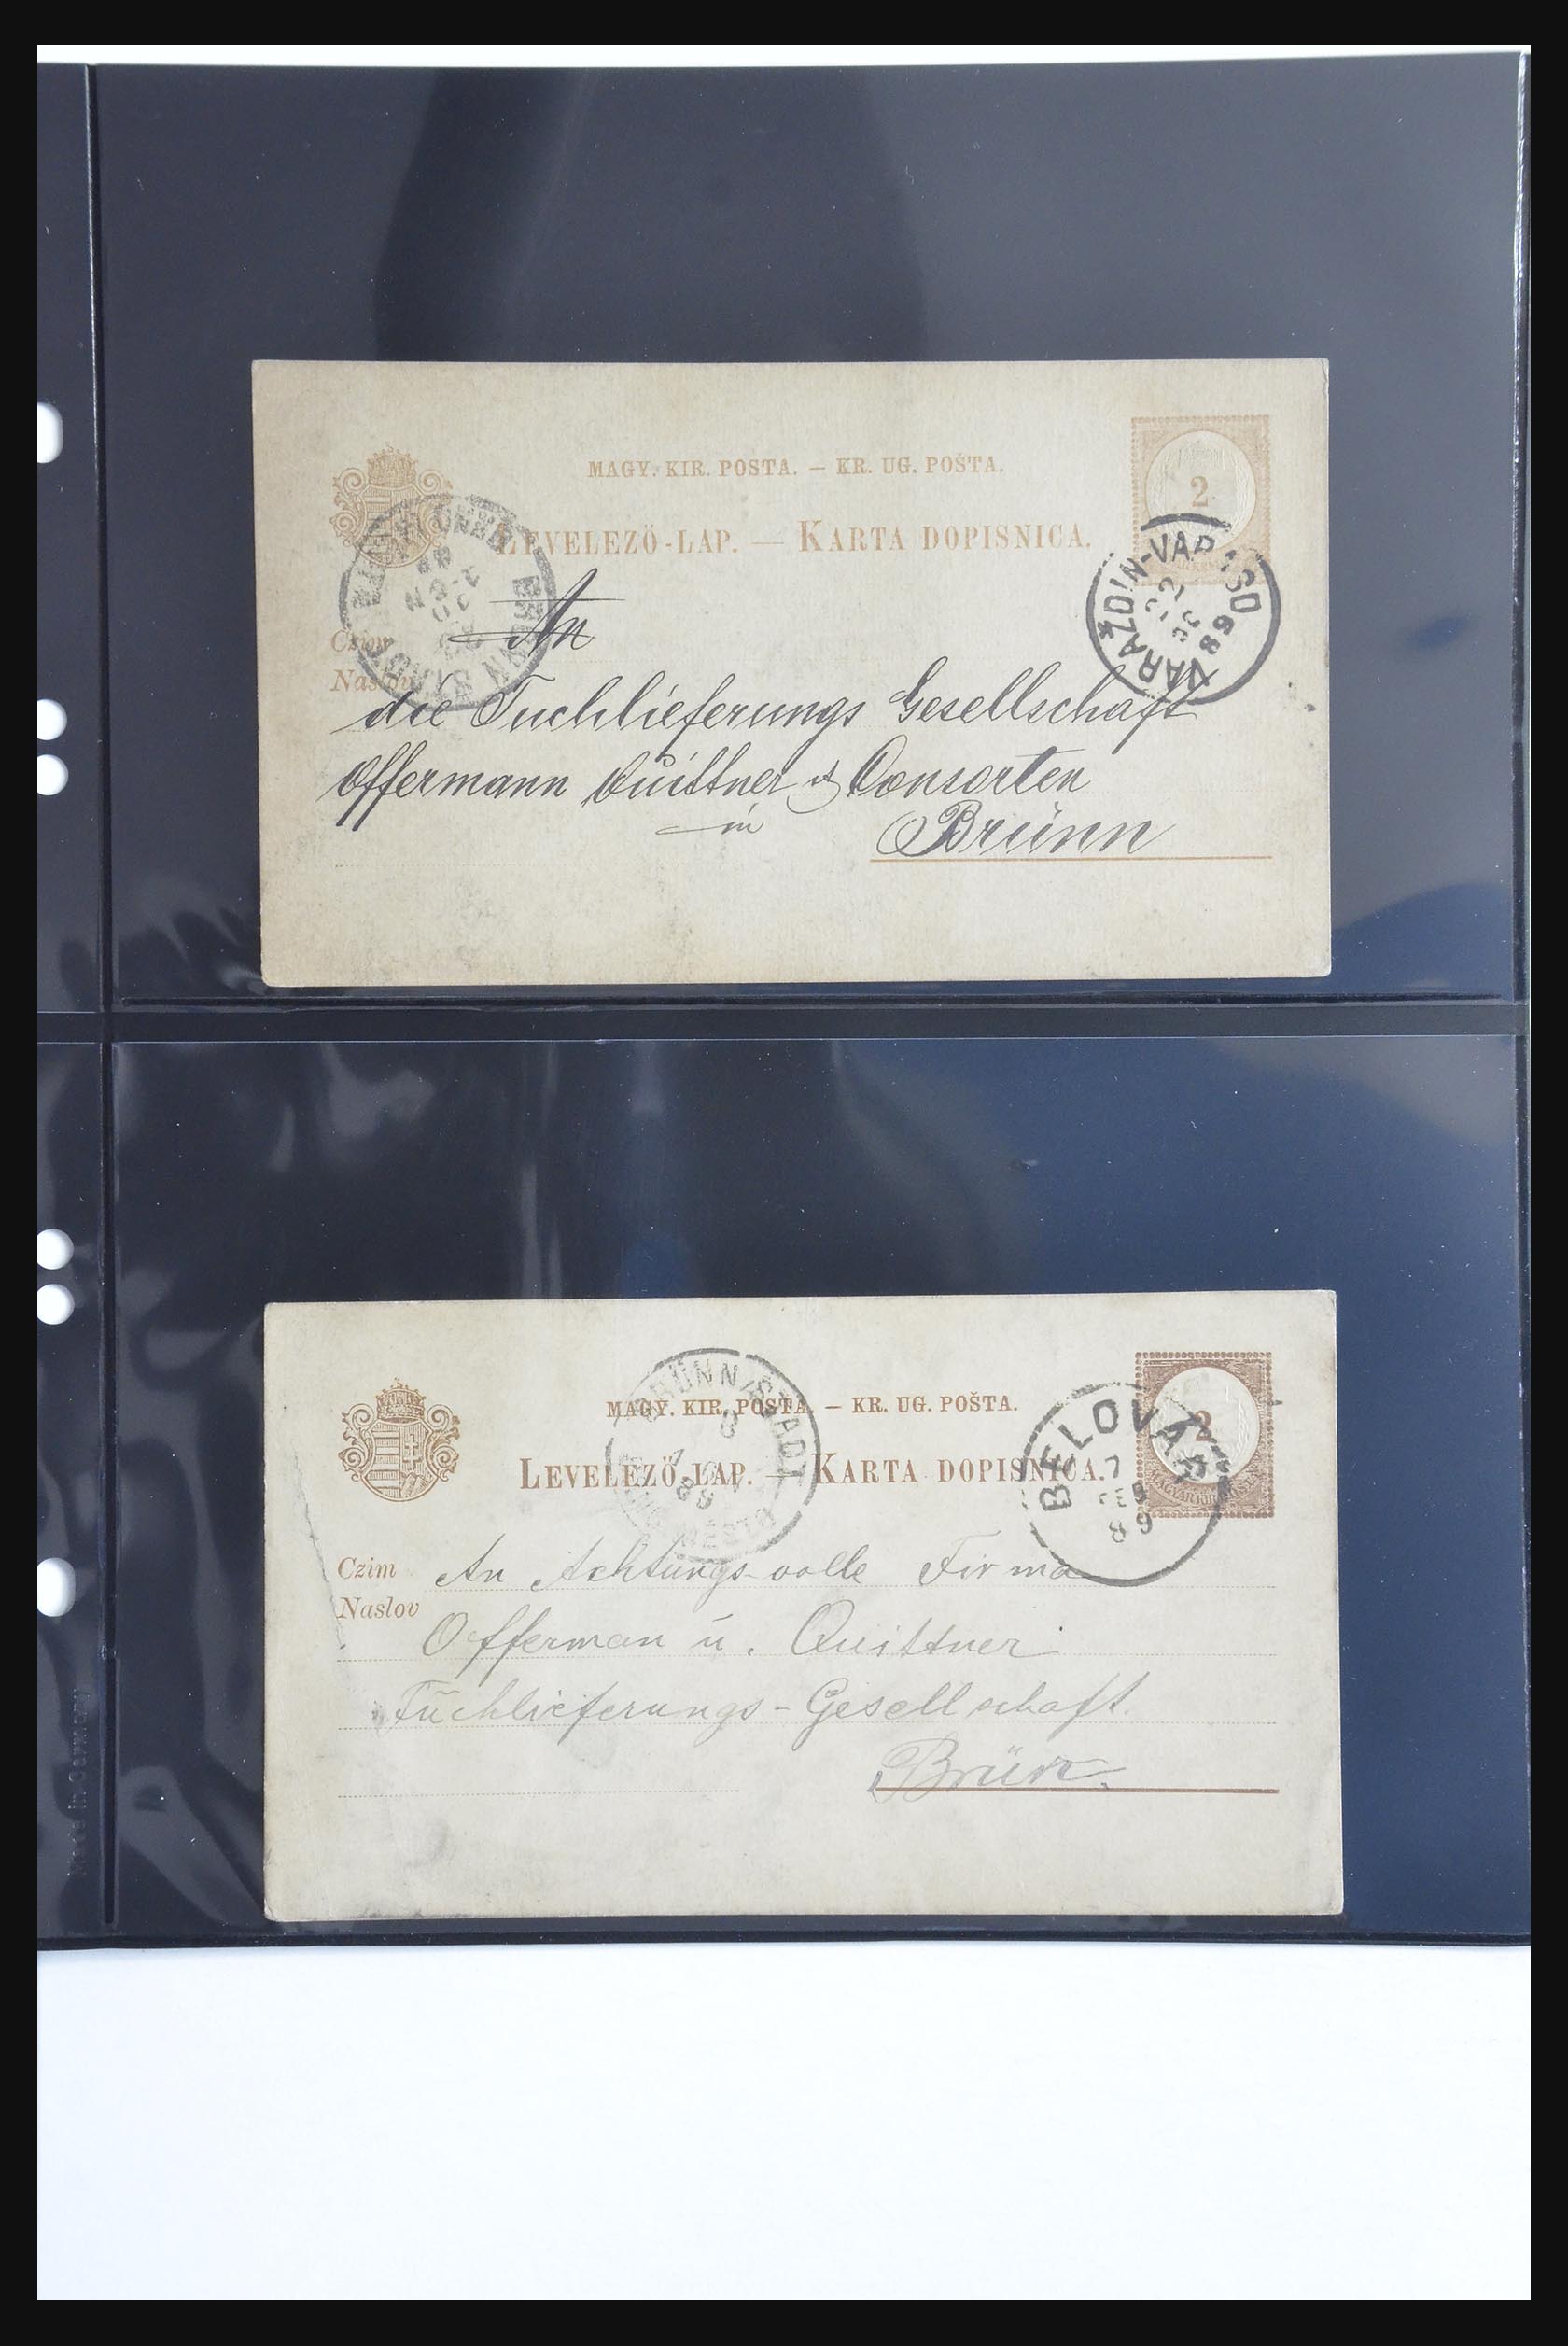 MAGY. KIR. POSTA. — KR. UG. POŠTA.
2
LEVELEZÖ-LAP. — KARTA DOPISNICA.
VARAŽDIN-VARASD
89
An
Czim
Naslov
die Tuchlieferungs Gesellschaft
Offermann Quittner & Consorten
in Brünn
BRÜNN STADT
MĚSTO
MAGY. KIR. POSTA. — KR. UG. POŠTA.
2
LEVELEZÖ-LAP. — KARTA DOPISNICA.
BELOVÁR
7
FEB
89
Czim An Achtungsvolle Firma
Naslov
Offerman u. Quittner
Tuchlieferungs-Gesellschaft.
Brün.
Made in Germany